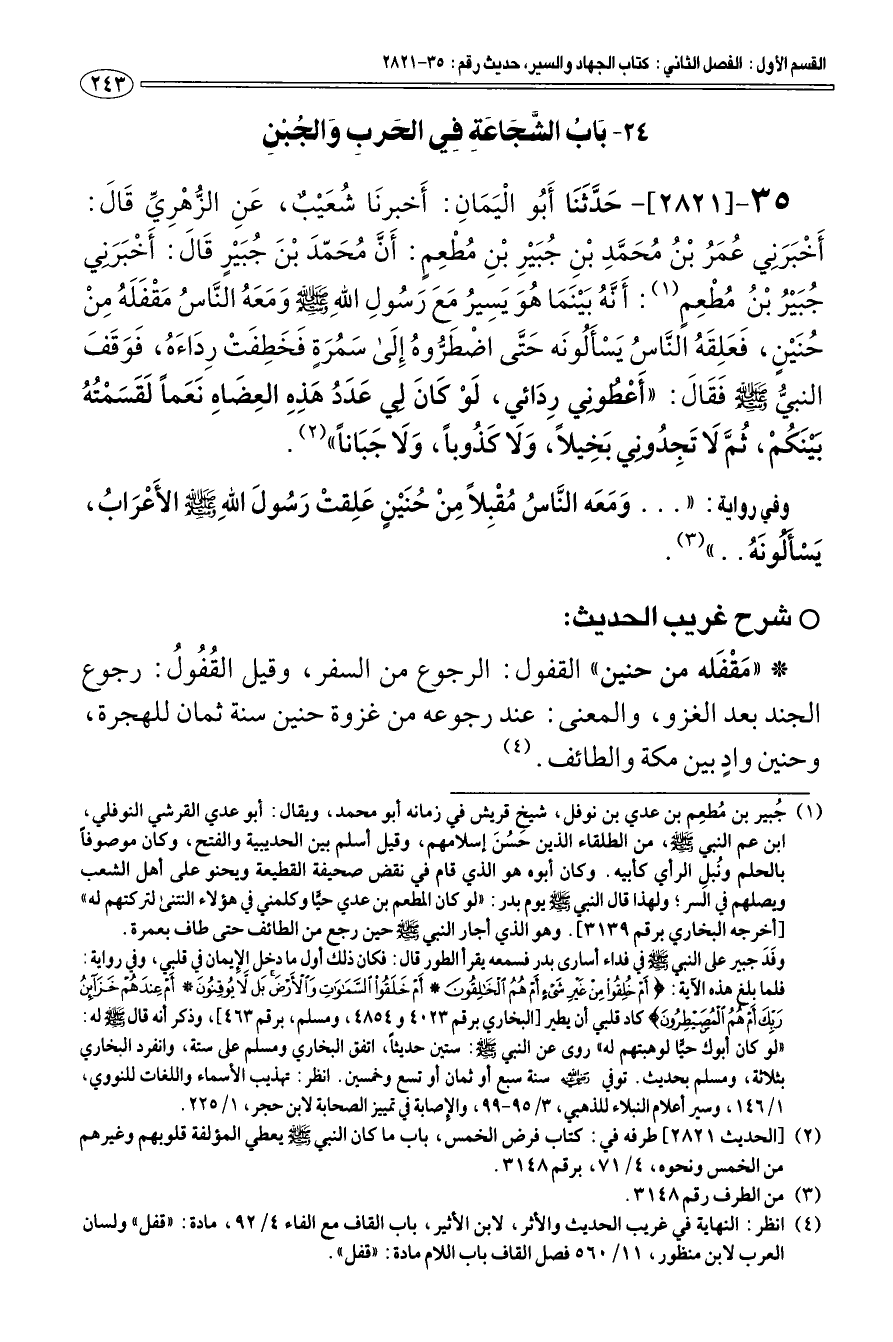 القسم الأول: الفصل الثاني: كتاب الجهاد والسير، حديث رقم: ٣٥-٢٨٢١
٢٤٣
٢٤- بَابُ الشَّجَاعَةِ فِي الحَربِ وَالجُبْنِ
٣٥-[٢٨٢١]- حَدَّثَنَا أَبُو الْيَمَانِ: أَخبرنَا شُعَيْبٌ، عَنِ الزُّهْرِيِّ قَالَ:
أَخْبَرَنِي عُمَرُ بْنُ مُحَمَّدِ بْنِ جُبَيْرِ بْنِ مُطْعِمٍ: أَنَّ مُحَمّدَ بْنَ جُبَيْرٍ قَالَ: أَخْبَرَنِي
جُبَيْرُ بْنُ مُطْعِمٍ(١): أَنَّهُ بَيْنَمَا هُوَ يَسِيرُ مَعَ رَسُولِ اللهِ ﷺ وَمَعَهُ النَّاسُ مَقْفَلَهُ مِنْ
حُنَيْنٍ، فَعَلِقَهُ النَّاسُ يَسْأَلُونَه حَتَّى اضْطَرُّوهُ إِلَىٰ سَمُرَةٍ فَخَطِفَتْ رِدَاءَهُ، فَوَقَفَ
النبيُّ ﷺ فَقَالَ: «أَعْطُونِي رِدَائي، لَوْ كَانَ لِي عَدَدُ هَذِهِ العِضَاهِ نَعَماً لَقَسَمْتُهُ
بَيْنَكُمْ، ثُمَّ لَا تَجِدُونِي بَخِيلاً، وَلَا كَذُوباً، وَلَا جَبَاناً»(٢).
وفي رواية: «... وَمَعَه النَّاسُ مُقْبِلاً مِنْ حُنَيْنٍ عَلِقتْ رَسُولَ اللهِ ﷺ الأَعْرَابُ،
يَسْأَلُونَهُ..»(٣).
○ شرح غريب الحديث:
* «مَقْفَله من حنين» القفول: الرجوع من السفر، وقيل القُفُولُ: رجوع
الجند بعد الغزو، والمعنى: عند رجوعه من غزوة حنين سنة ثمان للهجرة،
وحنين وادٍ بين مكة والطائف.(٤)
(١) جُبير بن مُطعِم بن عدي بن نوفل، شيخ قريش في زمانه أبو محمد، ويقال: أبو عدي القرشي النوفلي،
ابن عم النبي ﷺ، من الطلقاء الذين حَسُنَ إسلامهم، وقيل أسلم بين الحديبية والفتح، وكان موصوفاً
بالحلم ونُبلِ الرأي كأبيه. وكان أبوه هو الذي قام في نقض صحيفة القطيعة ويحنو على أهل الشعب
ويصلهم في السر؛ ولهذا قال النبي ﷺ يوم بدر: «لو كان المطعم بن عدي حيًّا وكلمني في هؤلاء النتنىٰ لتركتهم له»
[أخرجه البخاري برقم ٣١٣٩]. وهو الذي أجار النبي ﷺ حين رجع من الطائف حتى طاف بعمرة.
وفَدَ جبير على النبي ﷺ في فداء أسارى بدر فسمعه يقرأ الطور قال: فكان ذلك أول ما دخل الإيمان في قلبي، وفي رواية:
فلما بلغ هذه الآية: ﴿أَمْ خُلِقُوا۟ مِنْ غَيْرِ شَىْءٍ أَمْ هُمُ ٱلْخَٰلِقُونَ * أَمْ خَلَقُوا۟ ٱلسَّمَٰوَٰتِ وَٱلْأَرْضَ ۚ بَل لَّا يُوقِنُونَ * أَمْ عِندَهُمْ خَزَآئِنُ
رَبِّكَ أَمْ هُمُ ٱلْمُصَۣيْطِرُونَ﴾ كاد قلبي أن يطير [البخاري برقم ٤٠٢٣ و٤٨٥٤، ومسلم، برقم ٤٦٣]، وذكر أنه قال ﷺ له:
«لو كان أبوك حيًّا لوهبتهم له» روى عن النبي ﷺ: ستين حديثاً، اتفق البخاري ومسلم على ستة، وانفرد البخاري
بثلاثة، ومسلم بحديث. توفي رضي الله عنه سنة سبع أو ثمان أو تسع وخمسين. انظر: تهذيب الأسماء واللغات للنووي،
١٤٦/١، وسير أعلام النبلاء للذهبي، ٣/ ٩٥-٩٩، والإصابة في تمييز الصحابة لابن حجر، ١/ ٢٢٥.
(٢) [الحديث ٢٨٢١] طرفه في: كتاب فرض الخمس، باب ما كان النبي ﷺ يعطي المؤلفة قلوبهم وغيرهم
من الخمس ونحوه، ٤/ ٧١، برقم ٣١٤٨.
(٣) من الطرف رقم ٣١٤٨.
(٤) انظر: النهاية في غريب الحديث والأثر، لابن الأثير، باب القاف مع الفاء ٤/ ٩٢، مادة: «قفل» ولسان
العرب لابن منظور، ١١/ ٥٦٠ فصل القاف باب اللام مادة: «قفل».